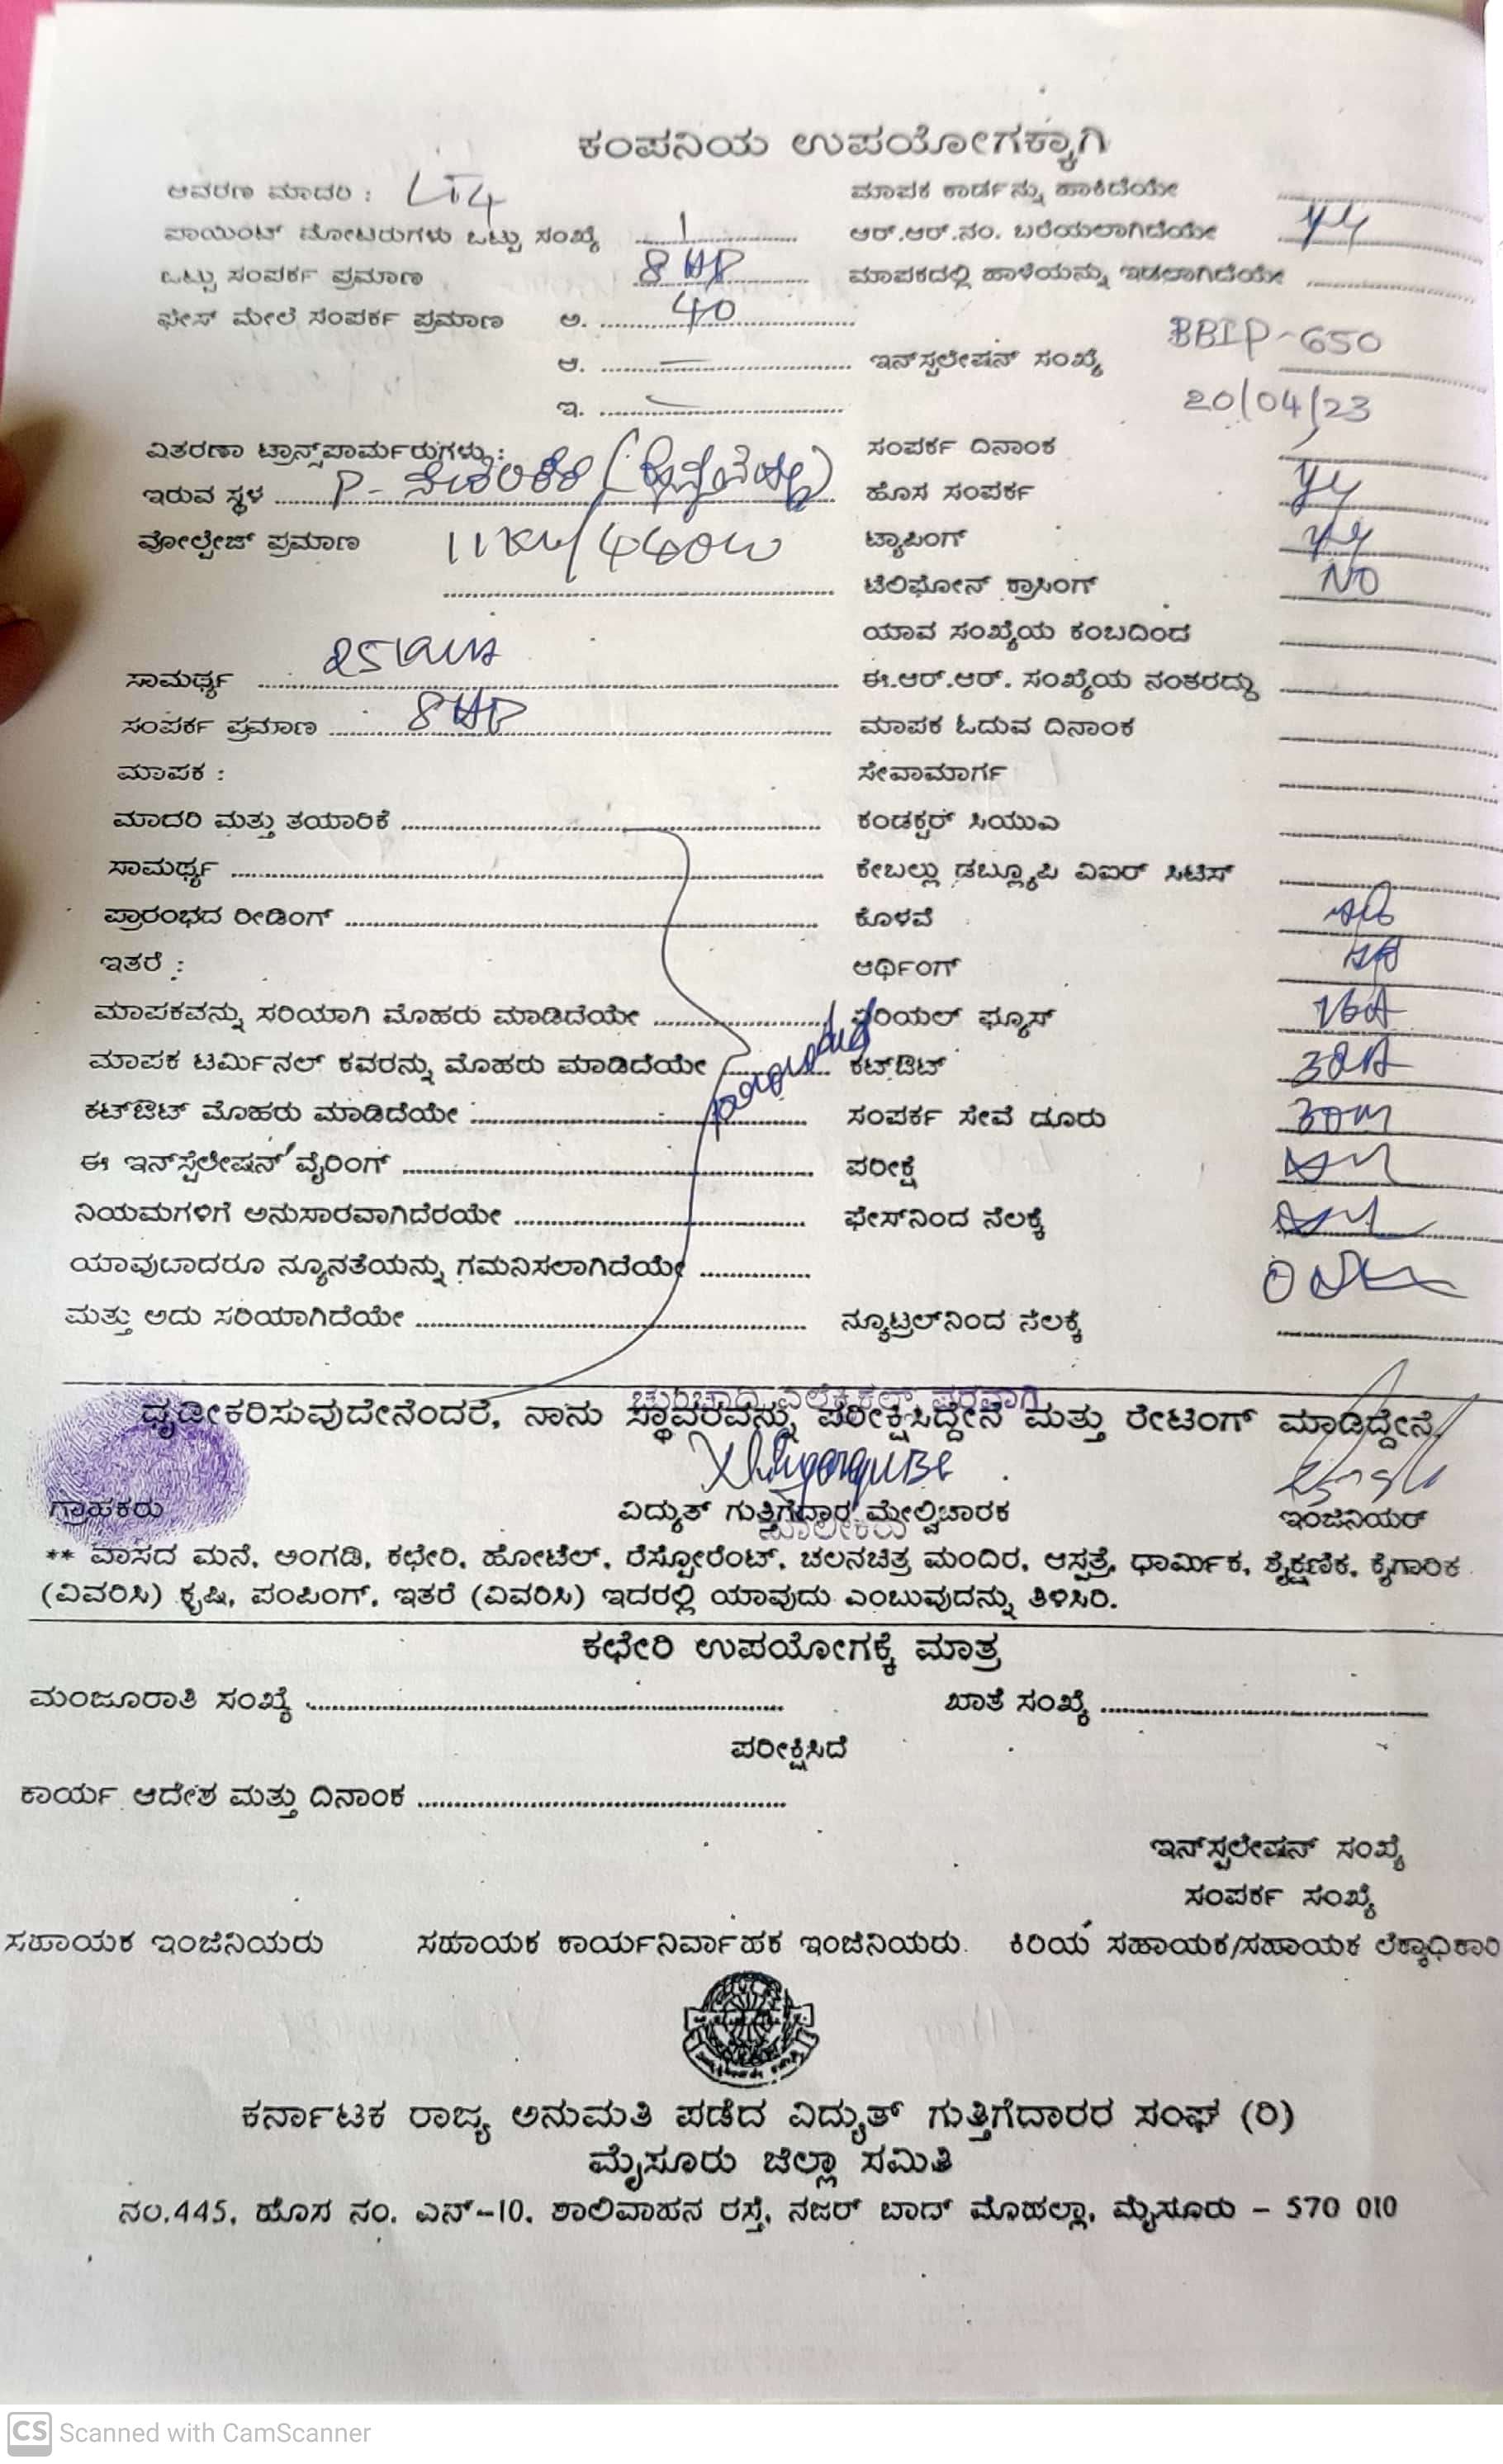 ಕಂಪನಿಯ ಉಪಯೋಗಕ್ಕಾಗಿ
ಆವರಣ ಮಾದರಿ : LT4 ಮಾಪಕ ಕಾರ್ಡನ್ನು ಹಾಕಿದೆಯೇ
ಪಾಯಿಂಟ್ ಮೋಟರುಗಳು ಒಟ್ಟು ಸಂಖ್ಯೆ 1 ಆರ್.ಆರ್.ನಂ. ಬರೆಯಲಾಗಿದೆಯೇ
ಒಟ್ಟು ಸಂಪರ್ಕ ಪ್ರಮಾಣ 8 HP ಮಾಪಕದಲ್ಲಿ ಹಾಳೆಯನ್ನು ಇಡಲಾಗಿದೆಯೇ
ಫೇಸ್ ಮೇಲೆ ಸಂಪರ್ಕ ಪ್ರಮಾಣ ಅ. 40
ಆ. ಇನ್‌ಸ್ಟಲೇಷನ್ ಸಂಖ್ಯೆ BBIP-650
ಇ. 20/04/23
ವಿತರಣಾ ಟ್ರಾನ್ಸ್‌ಪಾರ್ಮರುಗಳು : ಸಂಪರ್ಕ ದಿನಾಂಕ
ಇರುವ ಸ್ಥಳ P- ಹೊಸ ಸಂಪರ್ಕ
ವೋಲ್ಟೇಜ್ ಪ್ರಮಾಣ 11KV/440V ಟ್ಯಾಪಿಂಗ್
ಟೆಲಿಫೋನ್ ಕ್ರಾಸಿಂಗ್ NO
ಯಾವ ಸಂಖ್ಯೆಯ ಕಂಬದಿಂದ
ಸಾಮರ್ಥ್ಯ 25KVA ಈ.ಆರ್.ಆರ್. ಸಂಖ್ಯೆಯ ನಂತರದ್ದು
ಸಂಪರ್ಕ ಪ್ರಮಾಣ 8HP ಮಾಪಕ ಓದುವ ದಿನಾಂಕ
ಮಾಪಕ : ಸೇವಾಮಾರ್ಗ
ಮಾದರಿ ಮತ್ತು ತಯಾರಿಕೆ ಕಂಡಕ್ಟರ್ ಸಿಯುಎ
ಸಾಮರ್ಥ್ಯ ಕೇಬಲ್ಲು ಡಬ್ಲ್ಯೂಪಿ ವಿಐರ್ ಸಿಟಿಸ್
ಪ್ರಾರಂಭದ ರೀಡಿಂಗ್ ಕೊಳವೆ
ಇತರೆ : ಆರ್ಥಿಂಗ್
ಮಾಪಕವನ್ನು ಸರಿಯಾಗಿ ಮೊಹರು ಮಾಡಿದೆಯೇ ಏರಿಯಲ್ ಫ್ಯೂಸ್ 16A
ಮಾಪಕ ಟರ್ಮಿನಲ್ ಕವರನ್ನು ಮೊಹರು ಮಾಡಿದೆಯೇ ಕಟ್‌ಔಟ್ 32A
ಕಟ್‌ಔಟ್ ಮೊಹರು ಮಾಡಿದೆಯೇ ಸಂಪರ್ಕ ಸೇವೆ ದೂರು 30M
ಈ ಇನ್‌ಸ್ಟೆಲೇಷನ್ ವೈರಿಂಗ್ ಪರೀಕ್ಷೆ
ನಿಯಮಗಳಿಗೆ ಅನುಸಾರವಾಗಿದೆರಯೇ ಫೇಸ್‌ನಿಂದ ನೆಲಕ್ಕೆ
ಯಾವುಬಾದರೂ ನ್ಯೂನತೆಯನ್ನು ಗಮನಿಸಲಾಗಿದೆಯೇ
ಮತ್ತು ಅದು ಸರಿಯಾಗಿದೆಯೇ ನ್ಯೂಟ್ರಲ್‌ನಿಂದ ನೆಲಕ್ಕೆ
ಧೃಡೀಕರಿಸುವುದೇನೆಂದರೆ, ನಾನು ಸ್ಥಾವರವನ್ನು ಪರೀಕ್ಷಿಸಿದ್ದೇನೆ ಮತ್ತು ರೇಟಿಂಗ್ ಮಾಡಿದ್ದೇನೆ.
ಗ್ರಾಹಕರು ವಿದ್ಯುತ್ ಗುತ್ತಿಗೆದಾರ ಮೇಲ್ವಿಚಾರಕ ಇಂಜಿನಿಯರ್
** ವಾಸದ ಮನೆ, ಅಂಗಡಿ, ಕಛೇರಿ, ಹೋಟೆಲ್, ರೆಸ್ಟೋರೆಂಟ್, ಚಲನಚಿತ್ರ ಮಂದಿರ, ಆಸ್ಪತ್ರೆ, ಧಾರ್ಮಿಕ, ಶೈಕ್ಷಣಿಕ, ಕೈಗಾರಿಕ
(ವಿವರಿಸಿ) ಕೃಷಿ, ಪಂಪಿಂಗ್, ಇತರೆ (ವಿವರಿಸಿ) ಇದರಲ್ಲಿ ಯಾವುದು ಎಂಬುವುದನ್ನು ತಿಳಿಸಿರಿ.
ಕಛೇರಿ ಉಪಯೋಗಕ್ಕೆ ಮಾತ್ರ
ಮಂಜೂರಾತಿ ಸಂಖ್ಯೆ ಖಾತೆ ಸಂಖ್ಯೆ
ಪರೀಕ್ಷಿಸಿದೆ
ಕಾರ್ಯ ಆದೇಶ ಮತ್ತು ದಿನಾಂಕ
ಇನ್‌ಸ್ಟಲೇಷನ್ ಸಂಖ್ಯೆ
ಸಂಪರ್ಕ ಸಂಖ್ಯೆ
ಸಹಾಯಕ ಇಂಜಿನಿಯರು ಸಹಾಯಕ ಕಾರ್ಯನಿರ್ವಾಹಕ ಇಂಜಿನಿಯರು. ಕಿರಿಯ ಸಹಾಯಕ/ಸಹಾಯಕ ಲೆಕ್ಕಾಧಿಕಾರಿ
ಕರ್ನಾಟಕ ರಾಜ್ಯ ಅನುಮತಿ ಪಡೆದ ವಿದ್ಯುತ್ ಗುತ್ತಿಗೆದಾರರ ಸಂಘ (ರಿ)
ಮೈಸೂರು ಜಿಲ್ಲಾ ಸಮಿತಿ
ನಂ.445, ಹೊಸ ನಂ. ಎನ್-10, ಶಾಲಿವಾಹನ ರಸ್ತೆ, ನಜರ್ ಬಾದ್ ಮೊಹಲ್ಲಾ, ಮೈಸೂರು - 570 010
CS Scanned with CamScanner